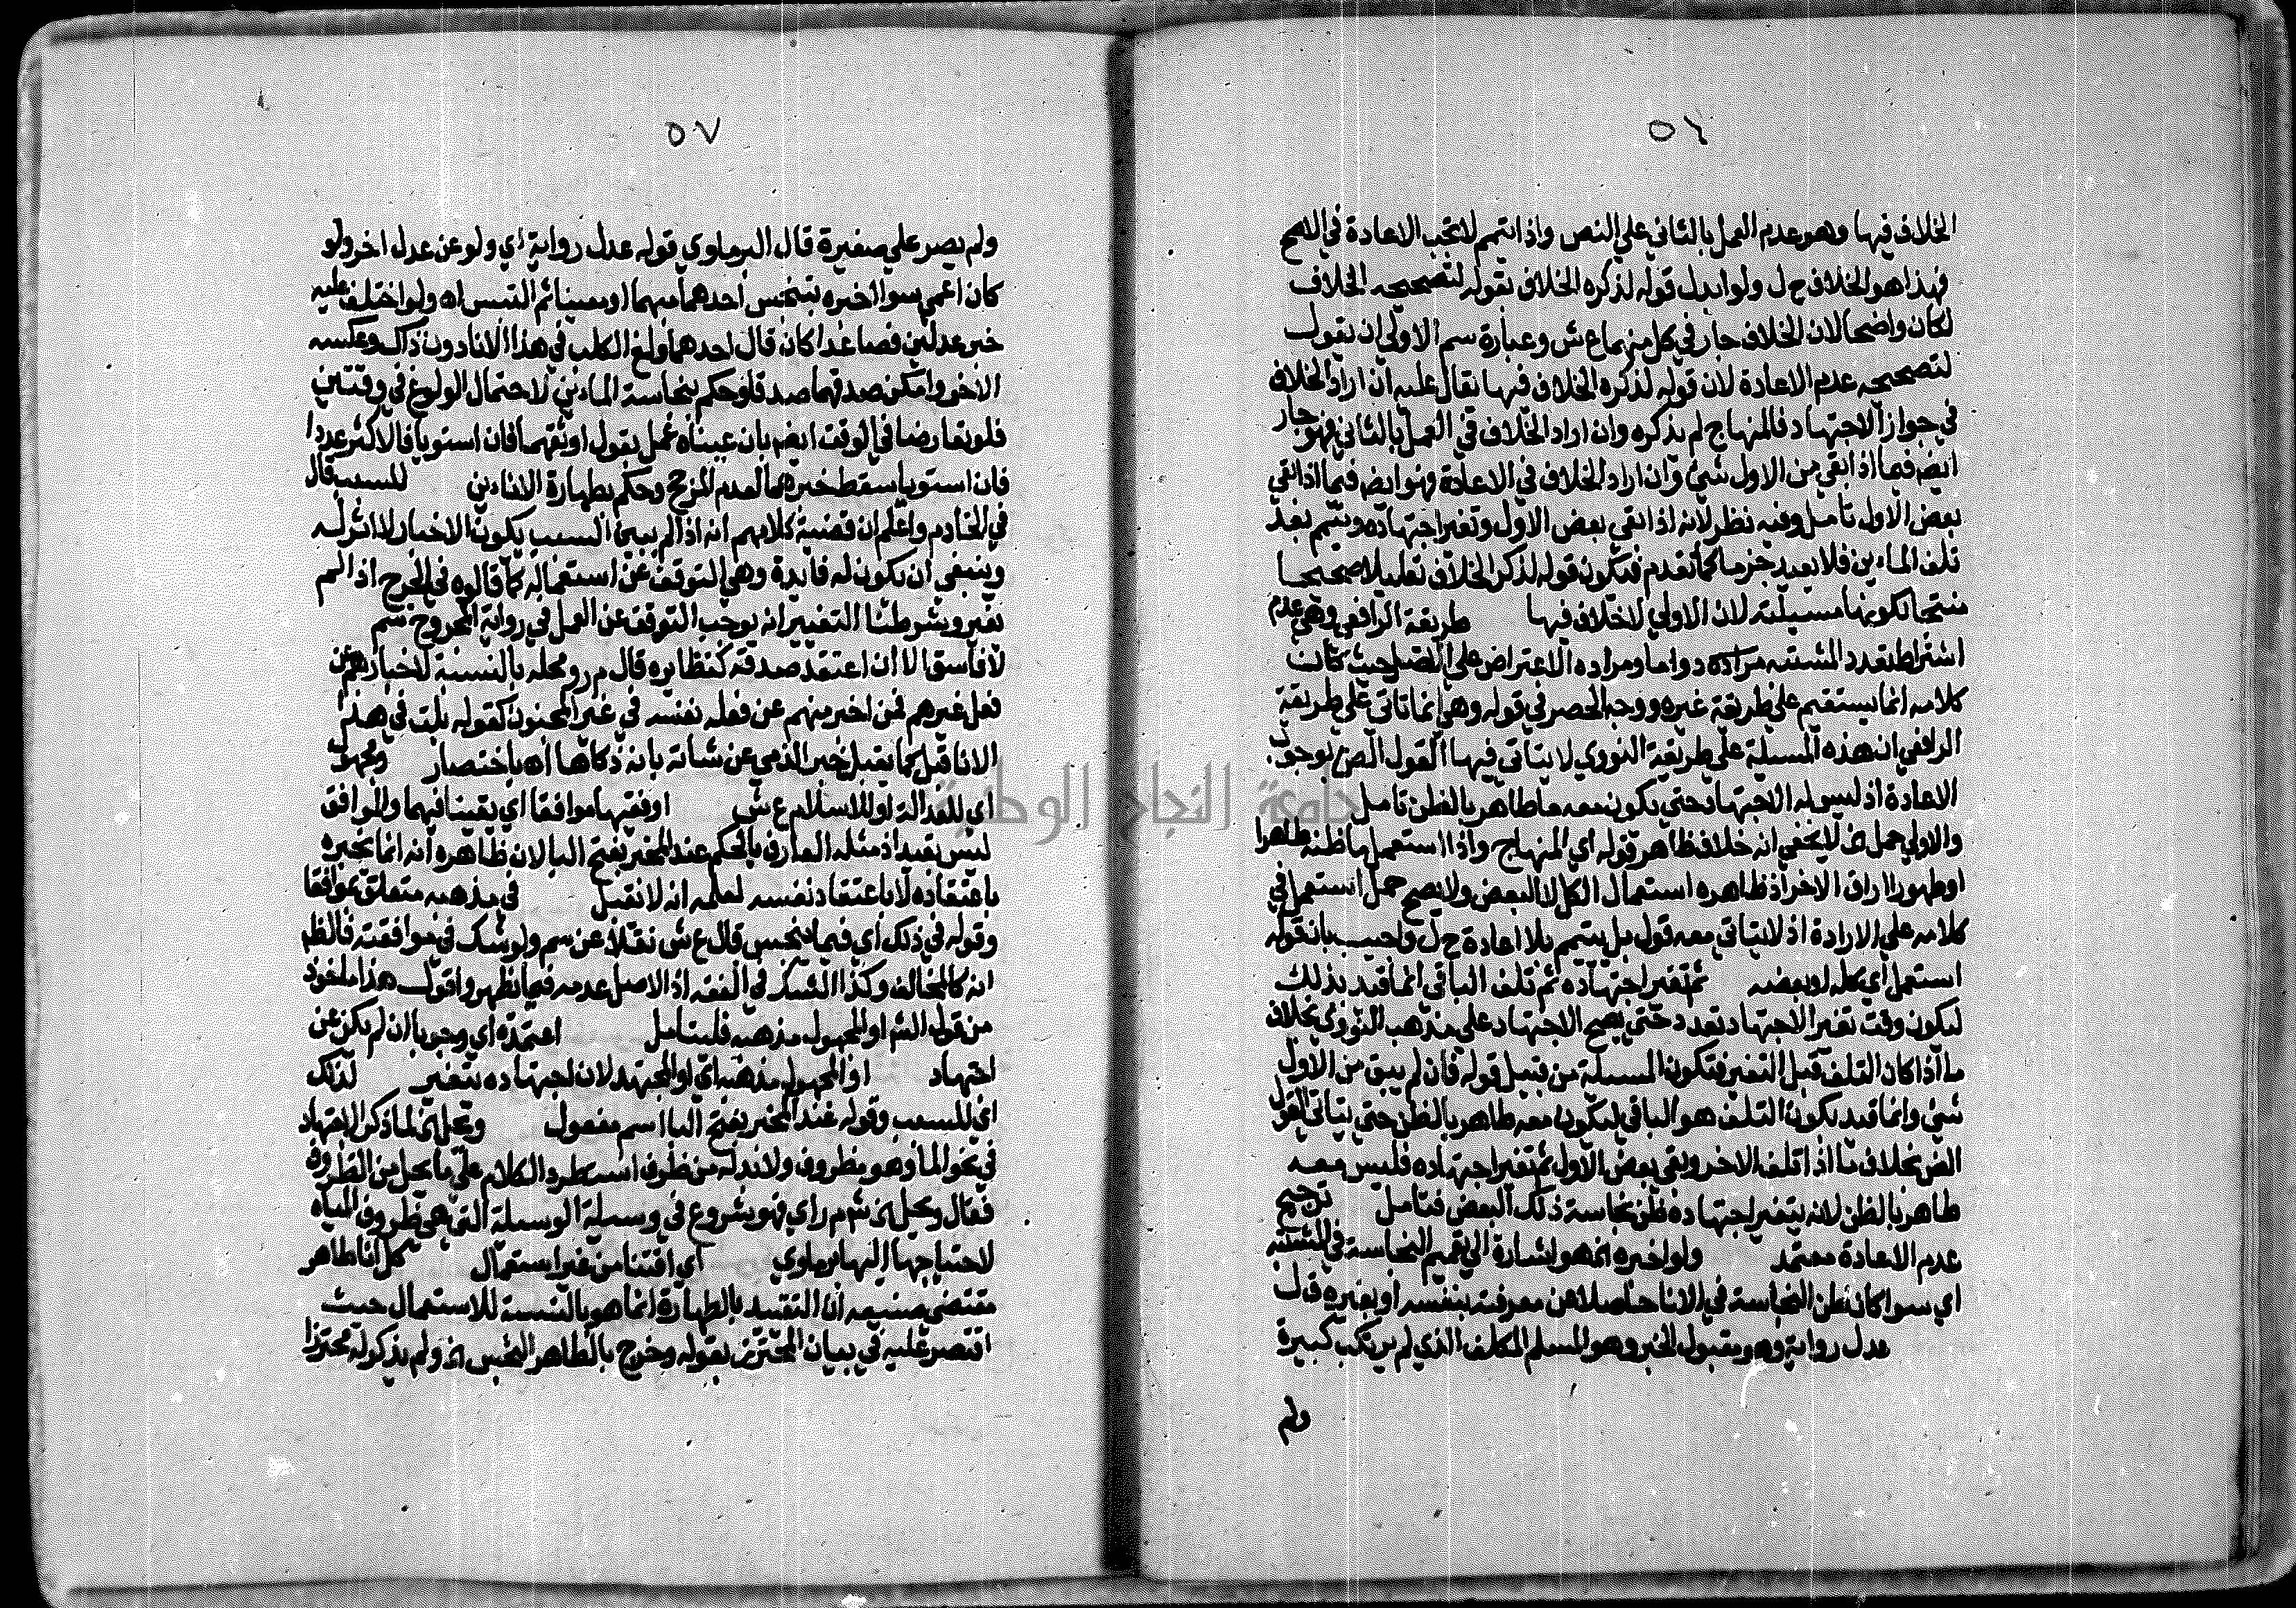 ٥٦
الخلاف فيها وهو عدم العمل بالثاني علي النص واذا تيمم لا تجب الاعادة في الاصح
فهذا هو الخلاف ح ل ولو ابدل قوله لذكره الخلاف بقوله لتصحيحه الخلاف
لكان واضحا لان الخلاف جار في كل منهما ع ش وعبارة سم الاولي ان يقول
لتصحيحه عدم الاعادة لان قوله لذكره الخلاف فيها يقال عليه ان اراد الخلاف
في جواز الاجتهاد فالمنهاج لم يذكره وان اراد الخلاف في العمل بالثاني فهو جار
ايضا فيما اذا بقي من الاول شئ وان اراد الخلاف في الاعادة فهو ايضا فيما اذا بقي
بعض الاول تامل وفيه نظر لانه اذا بقي بعض الاول وتغير اجتهاده ويتيمم بعد
تلف الماءين فلا يعيد جزما كما تقدم فيكون قوله لذكر الخلاف تعليلا صحيحا
منتجا لكونها مسيلته لان الاولي لا خلاف فيها طريقة الرافعي وهي عدم
اشتراط تعدد المشتبه مراده دواما ومراده الاعتراض علي الاصل حيث كان
كلامه انما يستقيم علي طريقة غيره ووجه الحصر في قوله وهي انما تاتي علي طريقة
الرافعي ان هذه المسيلة علي طريقة النووي لا يتاتي فيها القول الض بوجوب
الاعادة اذ ليس له الاجتهاد حتي يكون معه ما طاهر بالظن تامل
والاولي حمل ض لا يخفي انه خلاف ظاهر قوله اي المنهاج واذا استعمل ما ظنه طاهرا
او طهورا اراق الاخر اذ ظاهره استعمال الكل لا البعض ولا يصح حمل استعمل في
كلامه علي الارادة اذ لا يتاتي معه قول بل يتيمم بلا اعادة ح ل واجيب بان قوله
استعمل اي كله او بعضه ثم تغير اجتهاده ثم تلف الباقي انما قيد بذلك
ليكون وقت تغير الاجتهاد تعدد حتي يصح الاجتهاد علي مذهب النووي بخلاف
ما اذا كان التلف قبل التغير فتكون المسيلة من قبيل قوله فان لم يبق من الاول
شئ وانما قيد بكون التلف هو الباقي ليكون معه طاهر بالظن حتي يتاتي القول
الض بخلاف ما اذا تلف الاخر وبقي بعض الاول ثم تغير اجتهاده فليس معه
طاهر بالظن لانه بتغير اجتهاده ظن نجاسة ذلك البعض فتامل ترجيح
عدم الاعادة معتمد ولو اخبره الخ هو اشارة الي تقييم النجاسة في المشتبه
اي سوا كان ظن النجاسة في الانا حاصلا عن معرفته بنفسه او بغيره ق ل
عدل رواية وهو مقبول الخبر وهو المسلم المكلف الذي لم يرتكب كبيرة
ولم
٥٧
ولم يصر علي صغيرة قال البرماوي قوله عدل رواية اي ولو عن عدل اخر ولو
كان اعمي سوا اخبره بتنجس احدهما مبهما او معينا ثم التبس اه ولو اختلف عليه
خبر عدلين فصاعدا كان قال احدهما ولغ الكلب في هذا الانا دون ذاك وعكسه
الاخر وامكن صدقهما صدقا وحكم بنجاسة الماءين لاحتمال الولوغ في وقتين
فلو تعارضا في الوقت ايضا بان عيناه عمل بقول اوثقهما فان استويا فالاكثر عددا
فان استويا سقط خبرهما لعدم المرجح وحكم بطهارة الاناءين للسبب قال
في الخادم واعلم ان قضية كلامهم انه اذا لم يبين السبب يكون الاخبار لا اثر له
وينبغي ان يكون له فايدة وهي التوقف عن استعماله كما قالوه في الجرح اذا لم
يفسر وشرطنا التفسير انه يوجب التوقف عن العمل في رواية المجروح سم
لا فاسق الا ان اعتقد صدقه كنظايره قال م ر ومحله بالنسبة لاخبارهم عن
فعل غيرهم فمن اخبر منهم عن فعله نفسه في غير المجنون كقوله بلت في هذا
الانا قبل كما يقبل خبر الذمي عن شاته بانه ذكاها اه باختصار ومجهول
اي للعدالة او للاسلام ع ش او فقيها موافقا اي يقينا فيهما والموافق
ليس بقيد اذ مثله العارف بالحكم عند المخبر بفتح البا لان ظاهره انه انما يخبره
باعتقاده لا باعتقاد نفسه لعلمه انه لا يقبل في مذهبه متعلق بموافقا
وقوله في ذلك اي فيما ينجس قال ع ش نقلا عن سم ولو شك في موافقته فالظ
انه كالمخالف وكذا الشك في الفقه اذ الاصل عدمه فيما يظهر واقول هذا ماخوذ
من قول الش او المجهول مذهبه فليتامل اعتمده اي وجوبا ان لم يكن عن
اجتهاد او المجهول مذهبه اي او المجتهد لان اجتهاده يتغير لذلك
اي للسبب وقوله عند المخبر بفتح البا اسم مفعول ويحل الخ لما ذكر الاجتهاد
في نحو الما وهو مظروف ولا بد له من ظرف استطرد الكلام علي ما يحل من الظروف
فقال ويحل الخ شم راي فهو شروع في وسيلة الوسيلة التي هي ظروف المياه
لاحتياجها اليها برماوي اي اقتنا من غير استعمال كل انا طاهر
مقتضي صنيعه ان التقييد بالطهارة انما هو بالنسبة للاستعمال حيث
اقتصر عليه في بيان المحترز بقوله وخرج بالطاهر النجس الخ ولم يذكر له محترزا
جامعة النجاح الوطنية